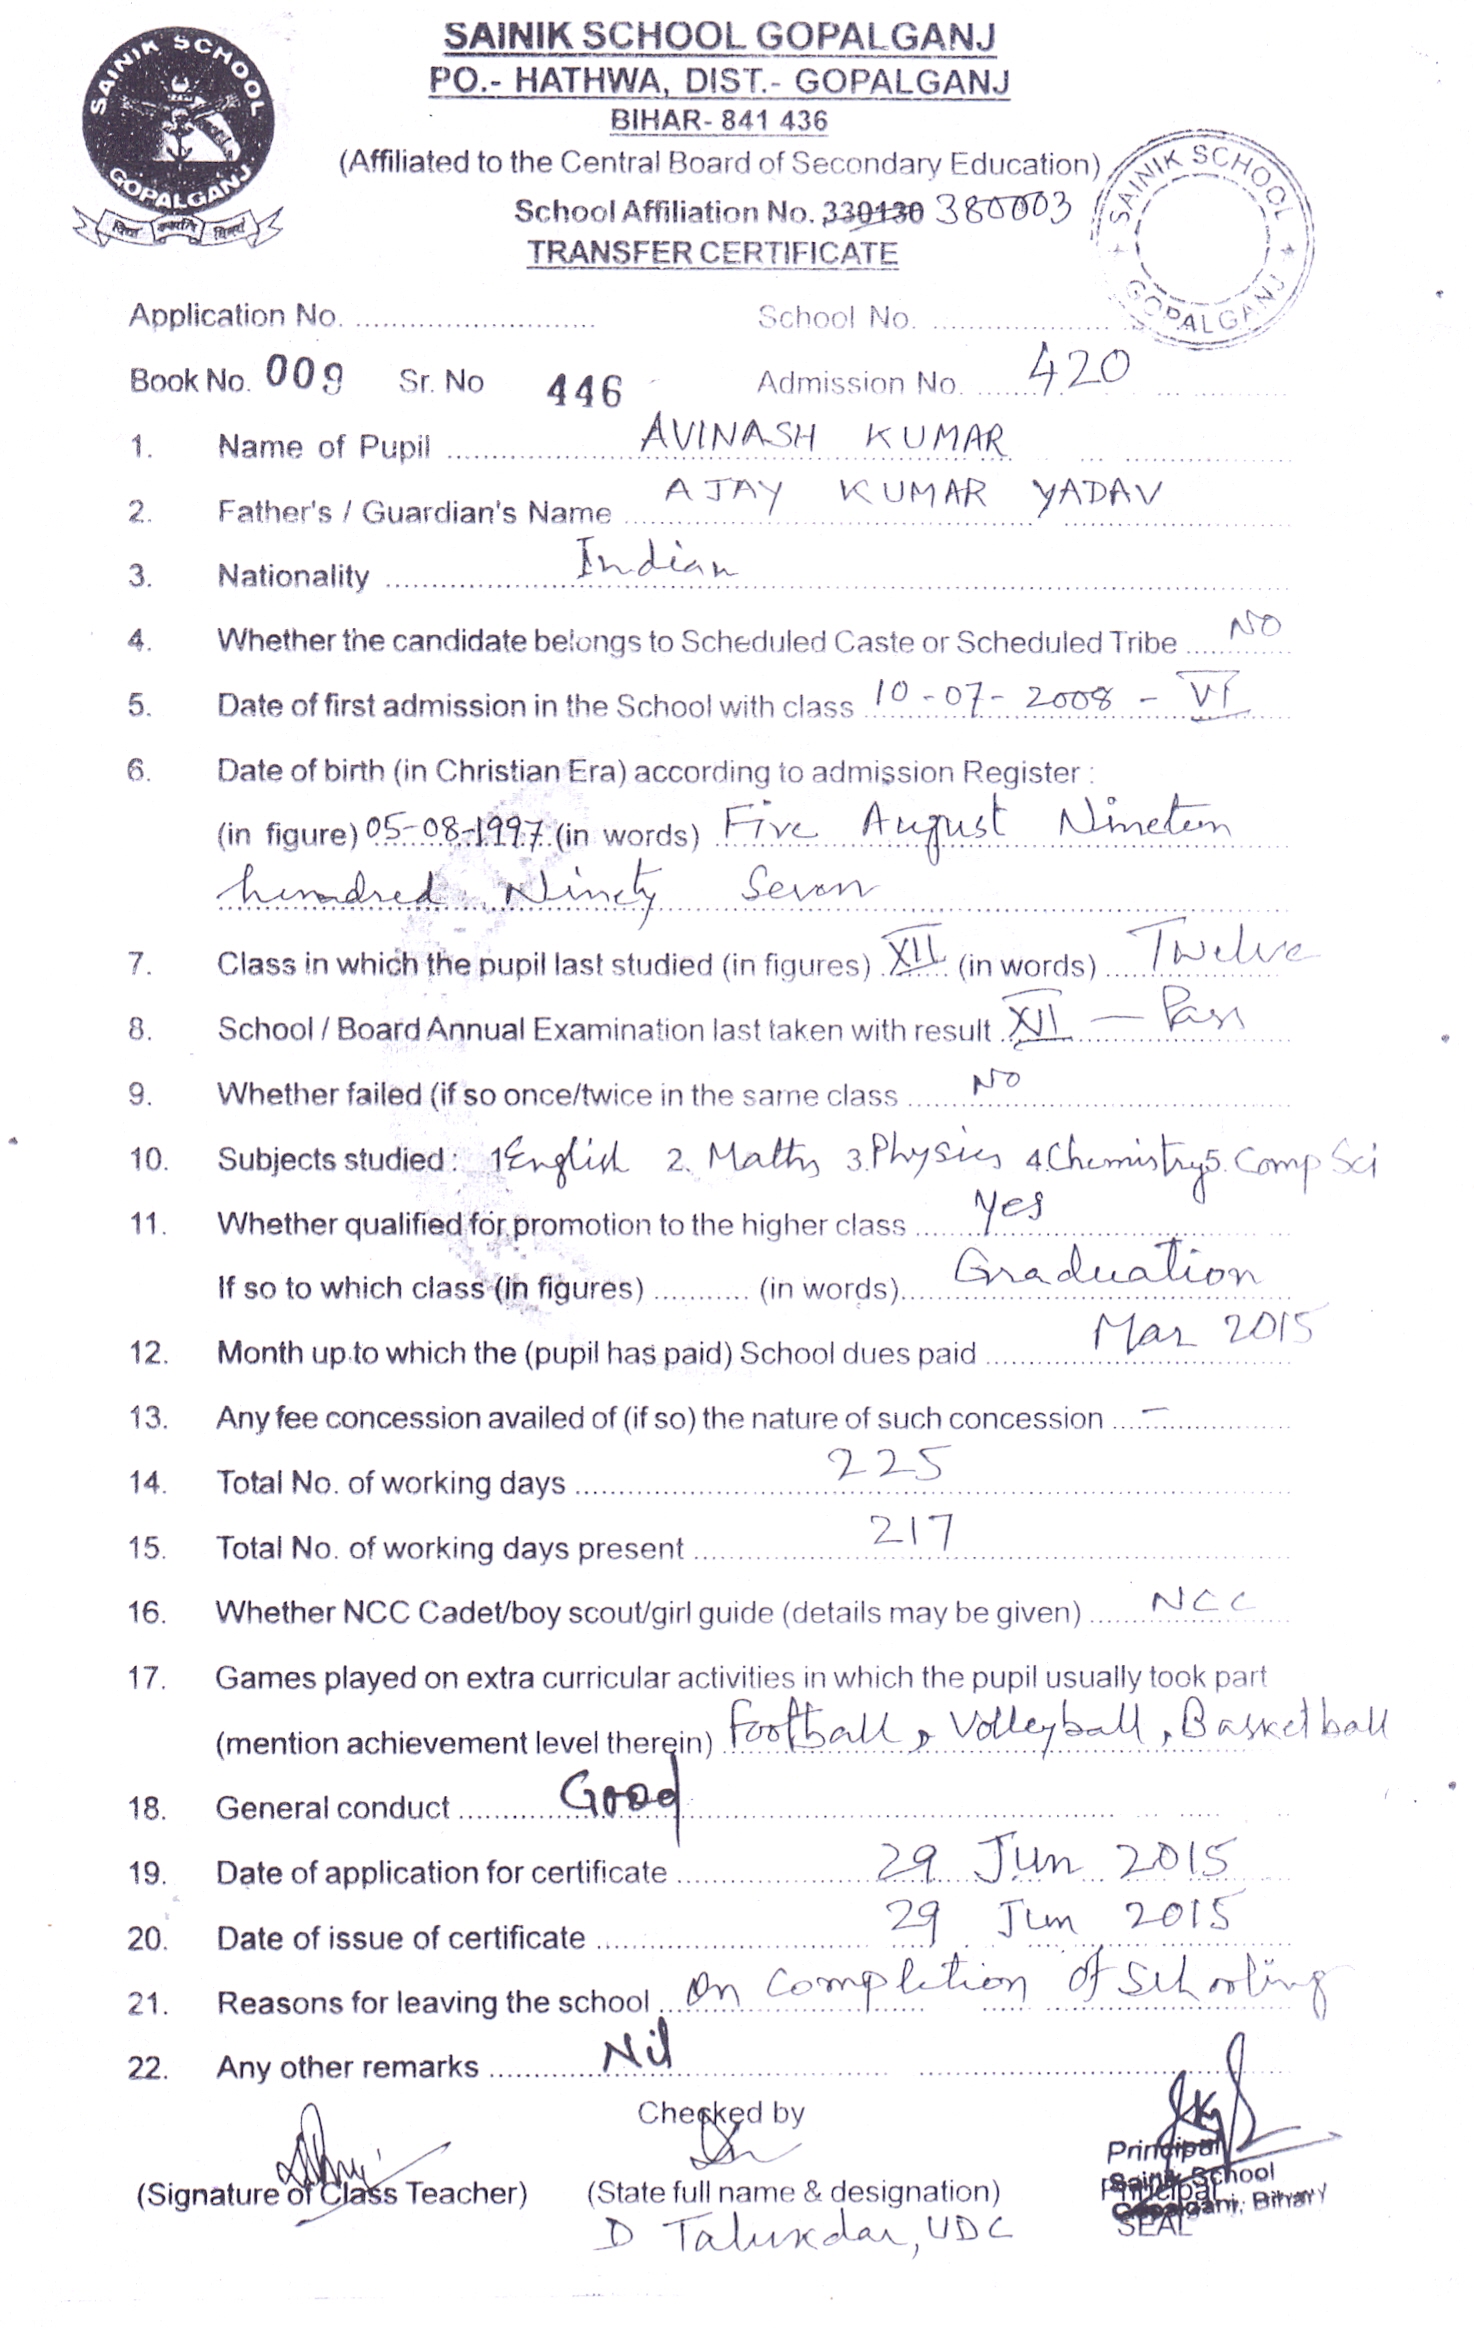 SAINIK SCHOOL GOPALGANJ
SAINIK SCHOOL GOPALGANJ
PO.- HATHWA, DIST.- GOPALGANJ
BIHAR- 841 436
(Affiliated to the Central Board of Secondary Education)
School Affiliation No. 330130 380003
SAINIK SCHOOL GOPALGANJ
TRANSFER CERTIFICATE
Application No. School No.
Book No. 009 Sr. No 446 Admission No. 420
1. Name of Pupil AVINASH KUMAR
2. Father's / Guardian's Name AJAY KUMAR YADAV
3. Nationality Indian
4. Whether the candidate belongs to Scheduled Caste or Scheduled Tribe NO
5. Date of first admission in the School with class 10-07-2008 - VI
6. Date of birth (in Christian Era) according to admission Register :
(in figure) 05-08-1997 (in words) Five August Nineteen
hundred Ninety Seven
7. Class in which the pupil last studied (in figures) XII (in words) Twelve
8. School / Board Annual Examination last taken with result XII - Pass
9. Whether failed (if so once/twice in the same class NO
10. Subjects studied : 1 English 2. Maths 3. Physics 4. Chemistry 5. Comp Sci
11. Whether qualified for promotion to the higher class Yes
If so to which class (in figures) (in words) Graduation
12. Month up to which the (pupil has paid) School dues paid Mar 2015
13. Any fee concession availed of (if so) the nature of such concession -
14. Total No. of working days 225
15. Total No. of working days present 217
16. Whether NCC Cadet/boy scout/girl guide (details may be given) NCC
17. Games played on extra curricular activities in which the pupil usually took part
(mention achievement level therein) Football, Volleyball, Basketball
18. General conduct Good
19. Date of application for certificate 29 Jun 2015
20. Date of issue of certificate 29 Jun 2015
21. Reasons for leaving the school On Completion of Schooling
22. Any other remarks Nil
Checked by
Principal
Sainik School
(Signature of Class Teacher) (State full name & designation) Principal
Gopalganj, Bihar
D Talukdar, UDC SEAL